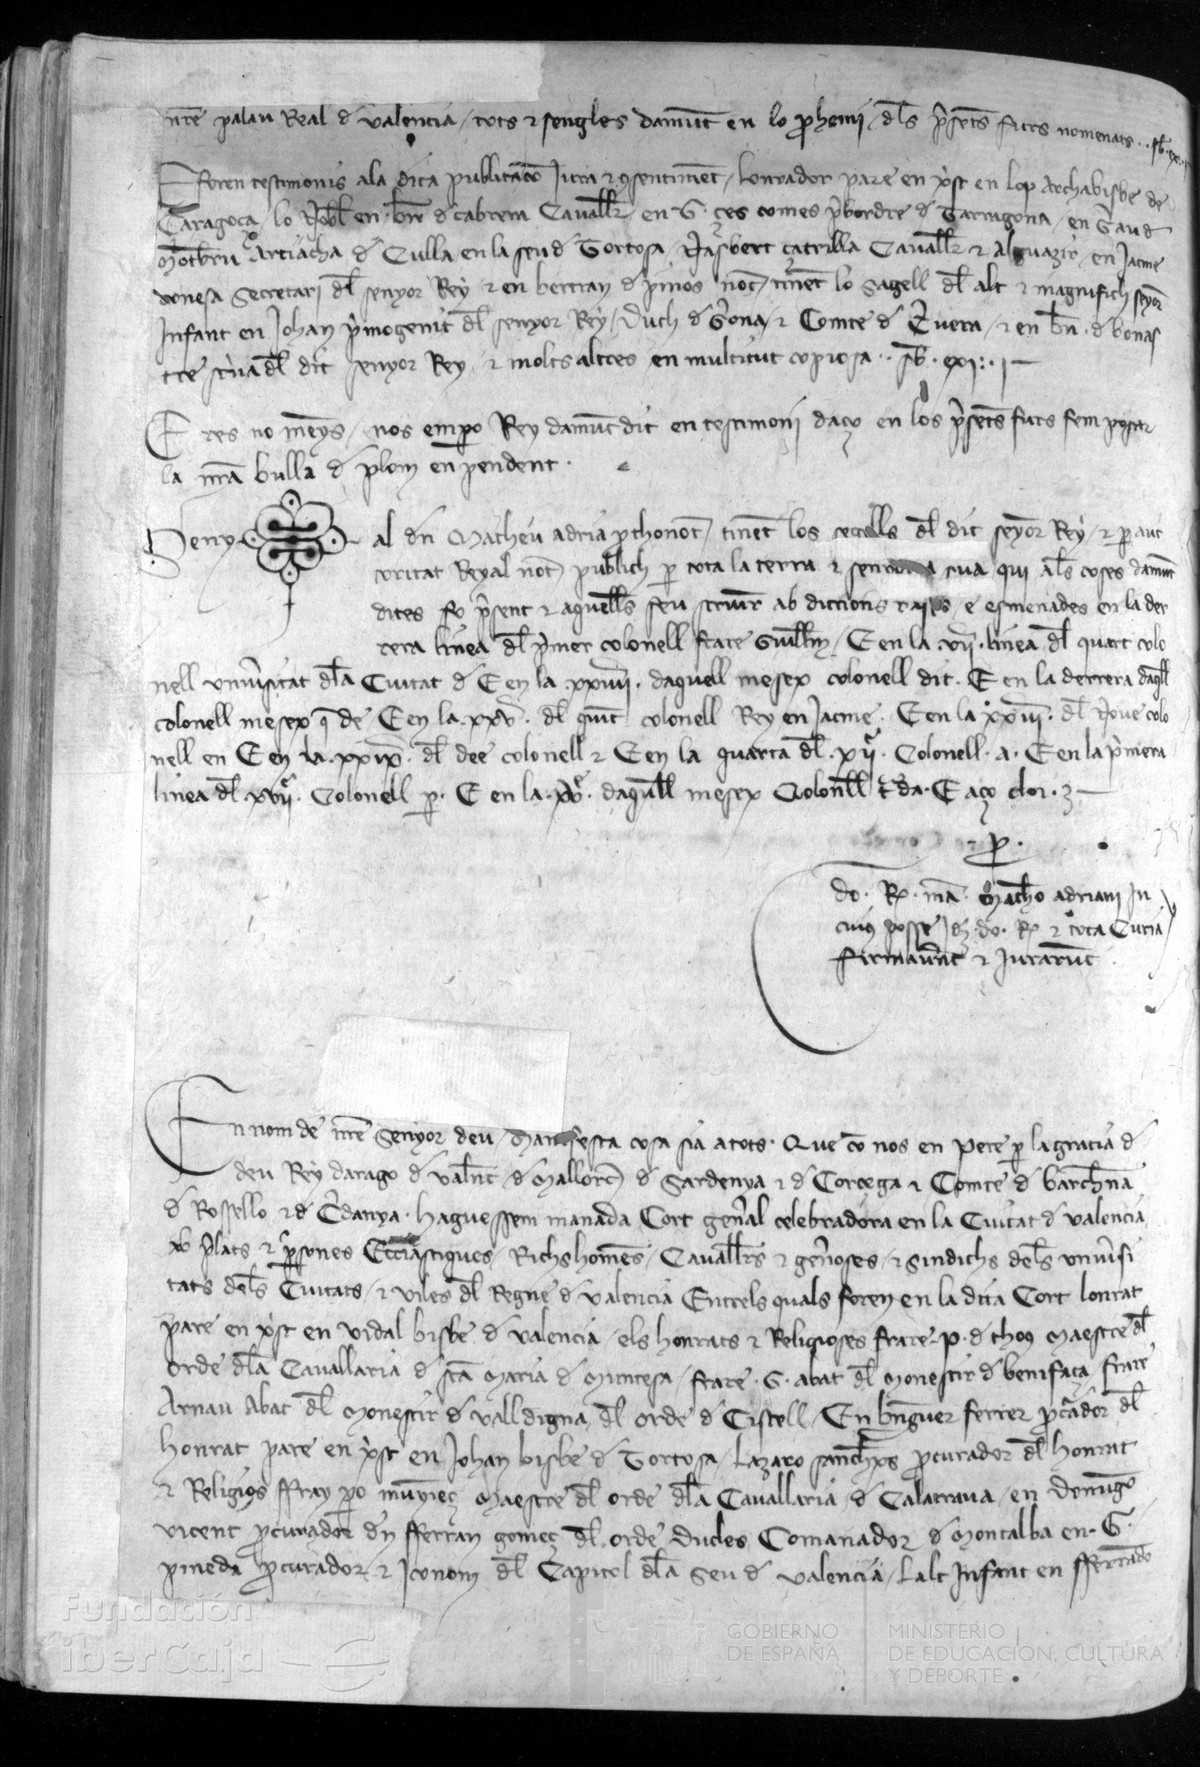 nr̃e palau Real d̃ valencia / tots ⁊ sengles damūt en lo ꝓhemi / dl̃s p̃sẽts furs nomenats
E foren testimonis ala dita publicacio Jura ⁊ ꝯsentimẽt / lonrador pare en xp̃st en lop Archabisbe de
Caragoça lo Nobl̃ en bn̄t d̃ cabrera Cavall̃r en G. ces comes p̃bordre d̃ Tarragona / en G̃au d̃
Mõtbru Artiacha d̃ Culla en la seu d̃ Tortosa / Jasbert çatrilla Cavall̃r ⁊ Alguazir en Jacme
conesa Secretari dl̃ senyor Rey ⁊ en bertran d̃ pinos not̃ tinẽt lo sagell dl̃ alt ⁊ magnifich seyõr
Infant en Johan p̃mogenit dl̃ senyor Rey / Duch d̃ G̃ona / ⁊ Comte d̃ C̃vera / ⁊ en bn̄. d̃ bonas
tre sc̃va dl̃ dit senyor Rey ⁊ molts altres en multitut copiosa
E res no mẽys / nos emꝑo Rey damũt dit en testimoni daço en los p̃sẽts furs fem posar
la nr̃a bulla d̃ plom en pendent.
Seny al dñ Matheu adria ꝓthonot̃ tinẽt los segells dl̃ dit seyõr Rey / ⁊ ꝑ auc
toritat Reyal not̃ publich ꝑ tota la terra ⁊ senyoria sua qui al̃s coses damũt
dites fo p̃sent ⁊ aquell̃s feu scriur̃ ab diccions rases e esmenades en la der
rera linea dl̃ p̃mer colonell frare Guillm̃ / E en la vii. linea dl̃ quart colo
nell uniṽsitat dl̃a Ciutat d̃ E en la .xxviii. daquell mesex colonell dit. E en la derrera daq̃ll
colonell mesex q̃ de E en la .xxv. dl̃ quīt colonell Rey en Jacme. E en la xxiii. dl̃ Nove colo
nell en E en la .xxix. dl̃ dee colonell ⁊ E en la quarta dl̃ .xii. Colonell. a. E en la p̃mera
linea dl̃ .xvii. Colonell ꝑ. E en la .xv. daq̃ll mesex Colonell t̃ da. E aço clos.
p̃.
Do. R̃. mã. Matheo adriani In
cuiꝰ posse Id̃ do. R̃ ⁊ tota Curia
firmaṽnt ⁊ Jurarũt
En nom de nr̃e Senyor deu / Manifesta cosa sia a tots. Que cõ nos en Pere ꝑ la gracia d̃
deu Rey darago d̃ valẽc̃ d̃ Mallorc̃ d̃ Sardenya ⁊ d̃ Corcega ⁊ Comte d̃ barchñna
d̃ Rossello ⁊ d̃ C̃danya. haguessem manada Cort gen̄al celebradora en la Ciutat d̃ valencia
ab p̃lats ⁊ ꝑsones Ecclãstiques / Richs homẽs / Cavall̃rs ⁊ gen̄oses / ⁊ Sindichs dels uniṽsi
tats dels Ciutats / ⁊ viles dl̃ Regne d̃ valencia Entrels quals foren en la dita Cort lonrat
pare en xp̃st en vidal bisbe d̃ valencia / els honrats ⁊ Religioses frare .p. d̃ thoꝰ Maestre dl̃
orde dl̃a Cavallaria d̃ sc̃a Maria d̃ Muntesa / frare .G. abat dl̃ Monestir d̃ benifaça frare
Arnau Abat dl̃ Monestir d̃ valldigna dl̃ orde d̃ Cistell / En bñguer ferrer ꝓc̃ador dl̃
honrat pare en xp̃st en Johan bisbe d̃ Tortosa / Lazaro sanchẽs ꝓcurador dl̃ honrat
⁊ Religios ffray ꝑo munyeç Maestre dl̃ orde dl̃a Cavallaria d̃ Calatrava / en Domĩgo
vicent ꝓcurador dñ fferran gomeç dl̃ orde Ducles Comanador d̃ Montalba en G.
pineda ꝓcurador ⁊ Iconom dl̃ Capitol dl̃a Seu d̃ valencia / Lalt Infant en fferrando
Fundación
iberCaja
GOBIERNO
DE ESPAÑA
MINISTERIO
DE EDUCACIÓN, CULTURA
Y DEPORTE